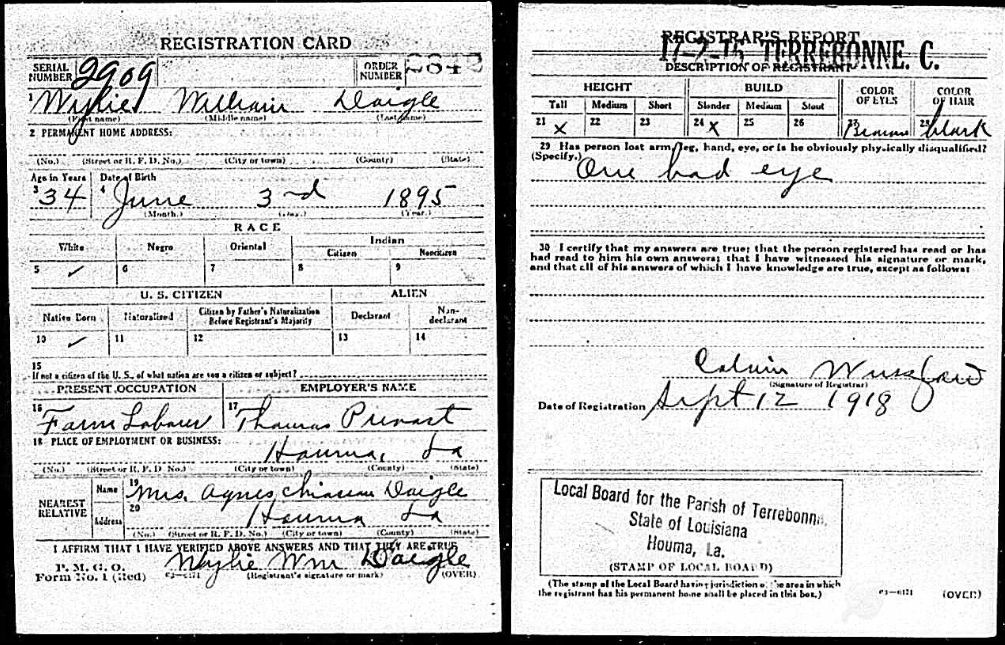 REGISTRATION CARD
SERIAL NUMBER 2909 ORDER NUMBER 2842
1 Wylie William Daigle
(First name) (Middle name) (Last name)
2 PERMANENT HOME ADDRESS:
(No.) (Street or R. F. D. No.) (City or town) (County) (State)
Age in Years Date of Birth
3 34 4 June 3rd 1895
(Month.) (Day.) (Year.)
RACE
White Negro Oriental Indian
Citizen Noncitizen
5 ✓ 6 7 8 9
U. S. CITIZEN ALIEN
Native Born Naturalized Citizen by Father's Naturalization Before Registrant's Majority Declarant Non-declarant
10 ✓ 11 12 13 14
15
If not a citizen of the U. S., of what nation are you a citizen or subject?
PRESENT OCCUPATION EMPLOYER'S NAME
16 Farm Laborer 17 Thomas
18 PLACE OF EMPLOYMENT OR BUSINESS:
Houma, La
(No.) (Street or R. F. D. No.) (City or town) (County) (State)
NEAREST RELATIVE Name 19 Mrs. Agnes Daigle
Address 20 Houma La
(No.) (Street or R. F. D. No.) (City or town) (County) (State)
I AFFIRM THAT I HAVE VERIFIED ABOVE ANSWERS AND THAT THEY ARE TRUE
P. M. G. O.
Form No. 1 (Red) 03—6171 Wylie Wm Daigle
(Registrant's signature or mark) (OVER)
REGISTRAR'S REPORT
17-2-15 TERREBONNE. C.
DESCRIPTION OF REGISTRANT
HEIGHT BUILD COLOR OF EYES COLOR OF HAIR
Tall Medium Short Slender Medium Stout
21 X 22 23 24 X 25 26 27 Brown 28 black
29 Has person lost arm, leg, hand, eye, or is he obviously physically disqualified?
(Specify.) One bad eye
30 I certify that my answers are true; that the person registered has read or has
had read to him his own answers; that I have witnessed his signature or mark,
and that all of his answers of which I have knowledge are true, except as follows:
Calvin
(Signature of Registrar)
Date of Registration Sept 12 1918
Local Board for the Parish of Terrebonne,
State of Louisiana
Houma, La.
(STAMP OF LOCAL BOARD)
(The stamp of the Local Board having jurisdiction of the area in which
the registrant has his permanent home shall be placed in this box.)
03—6171 (OVER)